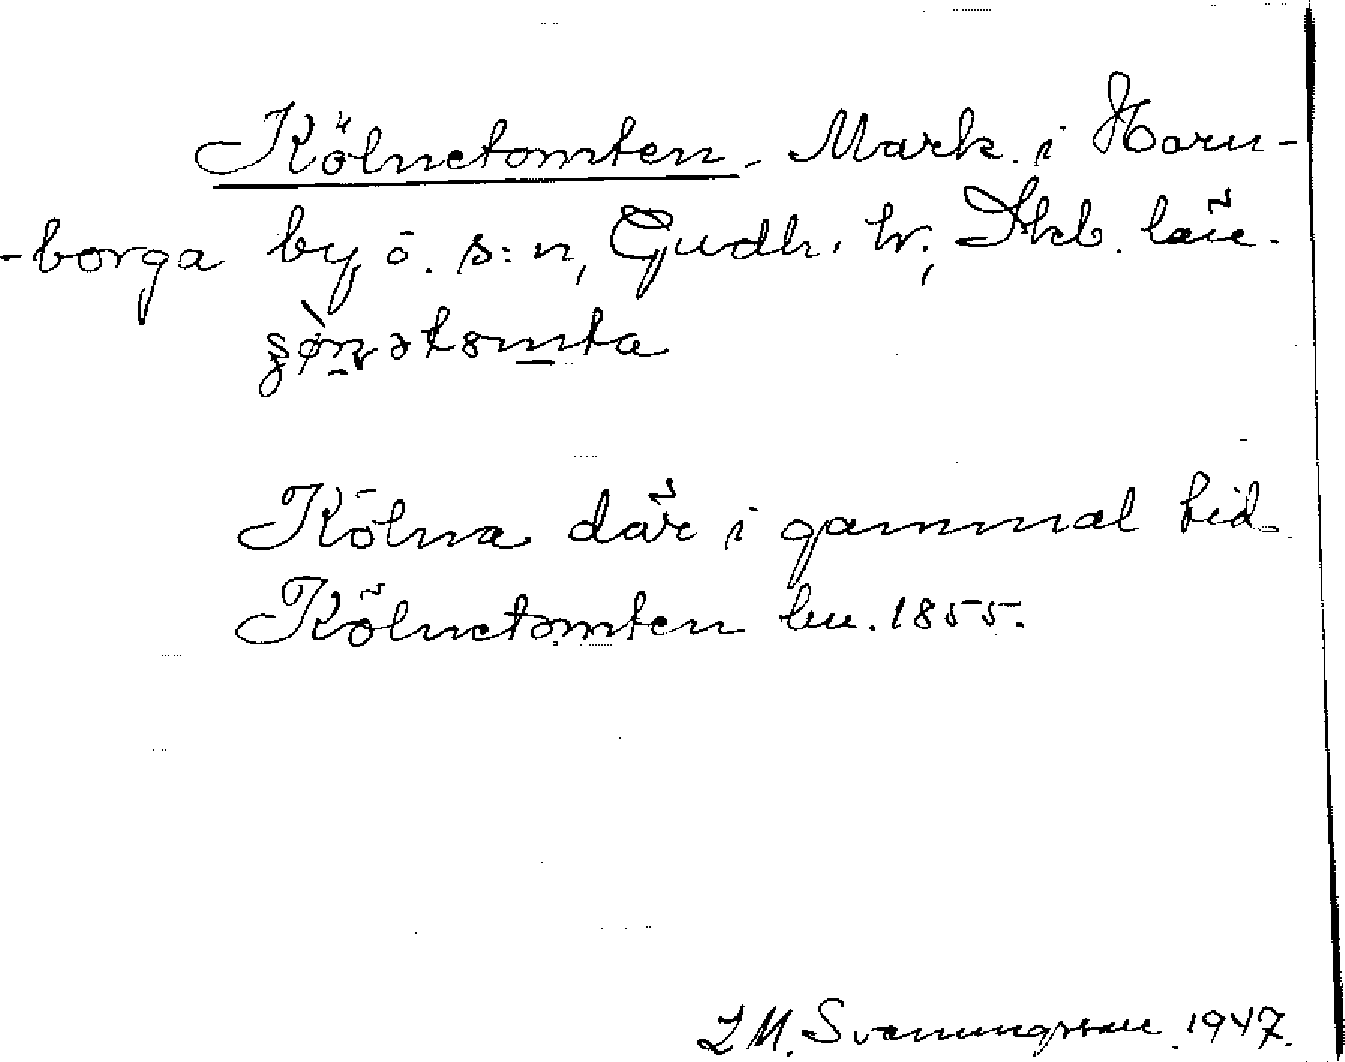 Kölnetomten. Mark. i Horn-
-borga by, o. s:n, Gudh. hr; Skb. län.
Kölna där i gammal tid.
Kölnetomten hu. 1855.
L M. Svenungsson 1947.